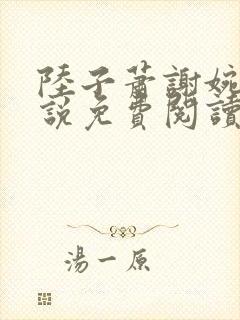 陸子蕭謝婉
説免費閱讀
湯一原